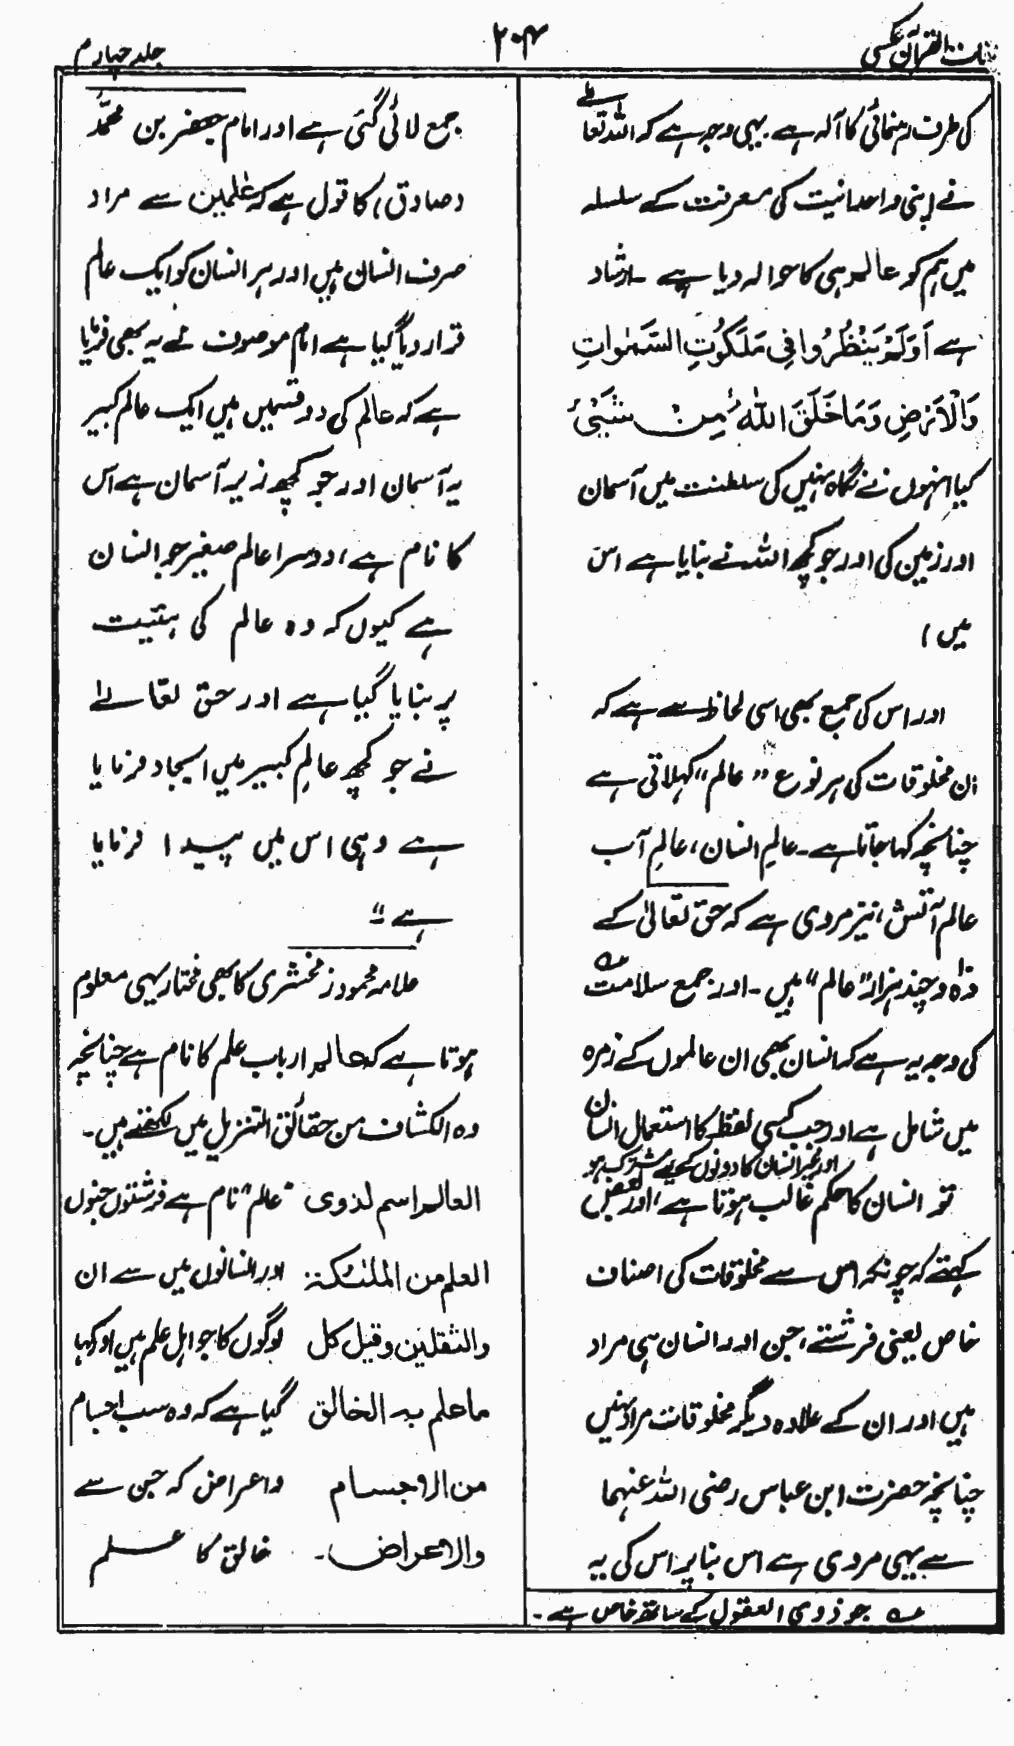 لغات القرآن عکسی
۲۰۴
جلد چہارم
کی طرف رہنمائی کا آلہ ہے یہی وجہ ہے کہ اللہ تعالیٰ
نے اپنی وحدانیت کی معرفت کے سلسلہ
میں ہم کو عالم ہی کا حوالہ دیا ہے ۔ ارشاد
ہے اَوَلَمْ یَنْظُرُوا فِی مَلَکُوْتِ السَّمٰوٰاتِ
وَالْاَرْضِ وَمَا خَلَقَ اللّٰہُ مِنْ شَیْئٍ
کیا انہوں نے نگاہ نہیں کی سلطنت میں آسمان
اور زمین کی اور جو کچھ اللہ نے بنایا ہے اس
میں )
اور اس کی جمع بھی اسی لحاظ سے ہے کہ
ان مخلوقات کی ہر نوع ”عالم“ کہلاتی ہے
چنانچہ کہا جاتا ہے۔ عالمِ انسان، عالمِ آب
عالم آتش، نیز مروی ہے کہ حق تعالیٰ کے
دہ و چند ہزار ”عالم“ ہیں ۔ اور جمع سلامت ؎
کی وجہ یہ ہے کہ انسان بھی ان عالموں کے زمرہ
میں شامل ہے اور جب کسی لفظ کا استعمال انسان
اور غیر انسان کا دونوں کے لیے مشترک ہو
تو انسان کا حکم غالب ہوتا ہے، اور بعض
کہتے کہ چونکہ اس سے مخلوقات کی اصناف
خاص یعنی فرشتے، جن اور انسان ہی مراد
ہیں اور ان کے علاوہ دیگر مخلوقات مراد نہیں
چنانچہ حضرت ابن عباس رضی اللہ عنہما
سے یہی مروی ہے اس بنا پر اس کی یہ
؎ جو ذوی العقول کے ساتھ خاص ہے ۔
جمع لائی گئی ہے اور امام جعفر بن محمدؒ
(صادق) کا قول ہے کہ عٰلمین سے مراد
صرف انسان ہیں اور ہر انسان کو ایک عالم
قرار دیا گیا ہے امام موصوف نے یہ بھی فرمایا
ہے کہ عالم کی دو قسمیں ہیں ایک عالم کبیر
یہ آسمان اور جو کچھ زیر آسمان ہے اس
کا نام ہے، دوسرا عالم صغیر جو انسان
ہے کیوں کہ وہ عالم کی ہئیت
پر بنایا گیا ہے اور حق تعالےٰ
نے جو کچھ عالمِ کبیر میں ایجاد فرمایا
ہے وہی اس میں پیدا فرمایا
ہے “
علامہ محمود زمخشری کا بھی مختار یہی معلوم
ہوتا ہے کہ عالم ارباب علم کا نام ہے چنانچہ
وہ الکشاف من حقائق التنزیل میں لکھتے ہیں۔
العالم اسم لذوی ”عالم“ نام ہے فرشتوں جنوں
العلم من الملٰئکۃ اور انسانوں میں سے ان
والثقلین وقیل کل لوگوں کا جو اہل علم ہیں اور کہا
ما علم بہ الخالق گیا ہے کہ وہ سب اجسام
من الاجسام و اعراض کہ جن سے
والاعراض۔ خالق کا علم